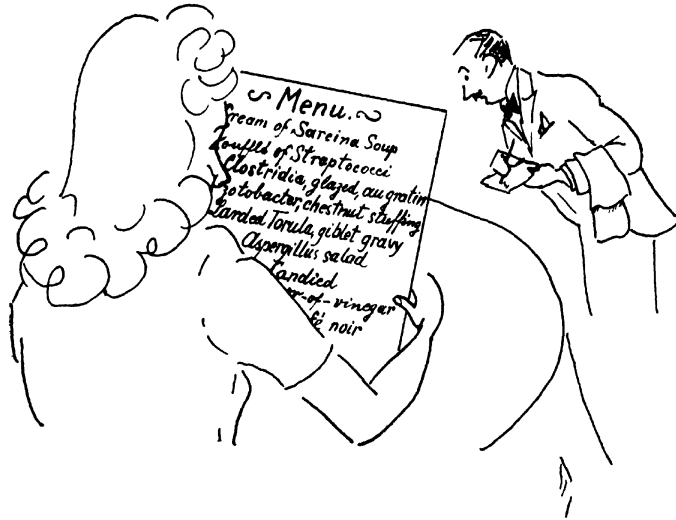 ~ Menu. ~
Cream of Sarcina Soup
Souffléd of Streptococci
Clostridia, glazed, au gratin
otobacter, chestnut stuffing
Larded Torula, giblet gravy
Aspergillus salad
Candied
er-of-vinegar
fé noir